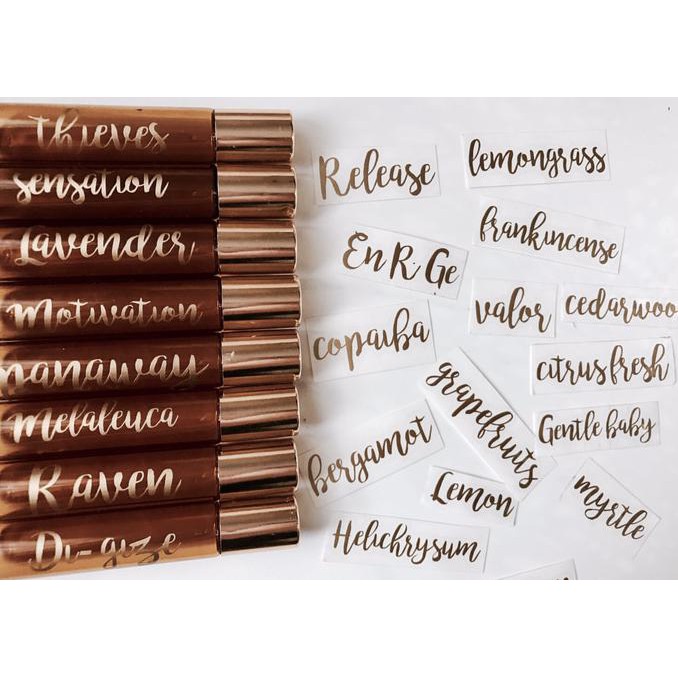 Thieves
sensation
Lavender
Motivation
Melaleuca
Raven
Di-gize
Release
lemongrass
En R Ge
frankincense
valor
cedarwoo
copaiba
citrus fresh
grapefruits
Gentle baby
bergamot
Lemon
myrtle
Helichrysum